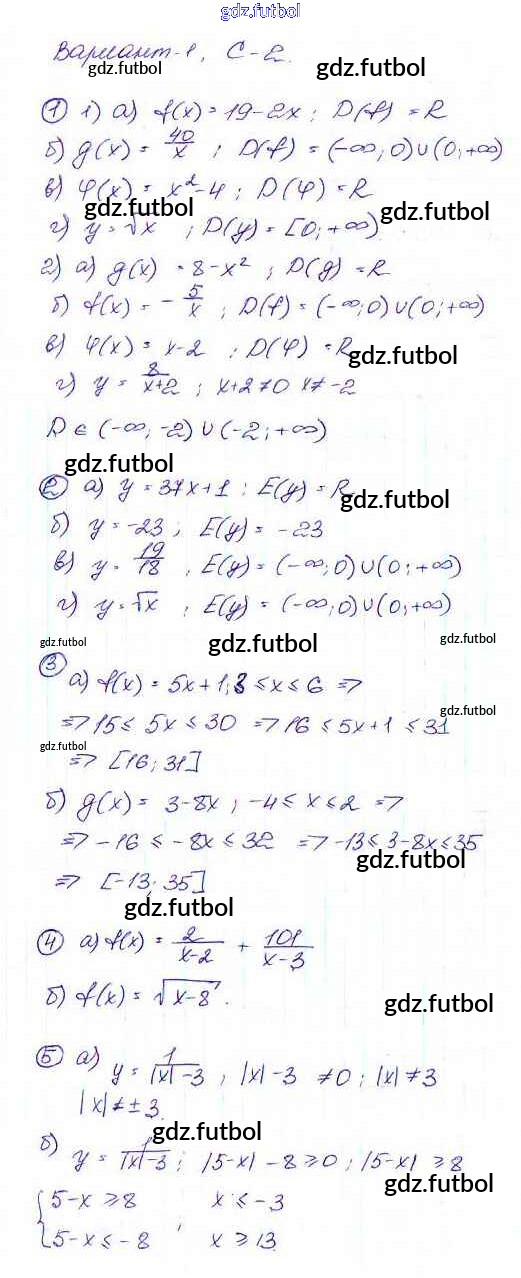 gdz.futbol
Вариант-1, С-2.
gdz.futbol gdz.futbol
① 1) а) f(x) = 19-2x ; D(f) = R
б) g(x) = 40/x ; D(f) = (-∞; 0) ∪ (0; +∞)
в) φ(x) = x²-4 ; D(φ) = R
gdz.futbol gdz.futbol
г) y = √x ; D(y) = [0; +∞)
2) а) g(x) = 8-x² ; D(g) = R
б) f(x) = - 5/x ; D(f) = (-∞; 0) ∪ (0; +∞)
в) φ(x) = x-2 ; D(φ) = R
gdz.futbol
г) y = 8/(x+2) ; x+2≠0 x≠-2
D ∈ (-∞; -2) ∪ (-2; +∞)
gdz.futbol
② а) y = 37x+1 ; E(y) = R
gdz.futbol
б) y = -23 ; E(y) = -23
в) y = 19/18 , E(y) = (-∞; 0) ∪ (0; +∞)
г) y = √x , E(y) = (-∞; 0) ∪ (0; +∞)
gdz.futbol gdz.futbol gdz.futbol
③ а) f(x) = 5x+1; 3 ≤ x ≤ 6 =>
gdz.futbol
=> 15 ≤ 5x ≤ 30 => 16 ≤ 5x+1 ≤ 31
gdz.futbol
=> [16; 31]
б) g(x) = 3-8x ; -4 ≤ x ≤ 2 =>
=> -16 ≤ -8x ≤ 32 => -13 ≤ 3-8x ≤ 35
gdz.futbol
=> [-13; 35]
gdz.futbol
④ а) f(x) = 2/(x-2) + 101/(x-3)
б) f(x) = √(x-8) .
gdz.futbol
⑤ а) y = 1/(|x|-3) ; |x|-3 ≠0 ; |x|≠3
|x|≠±3.
gdz.futbol
б) y = 1/(|x|-3) ; |5-x|-8≥0 ; |5-x|≥8
gdz.futbol
{5-x≥8 x≤-3
{5-x≤-8 ; x≥13.